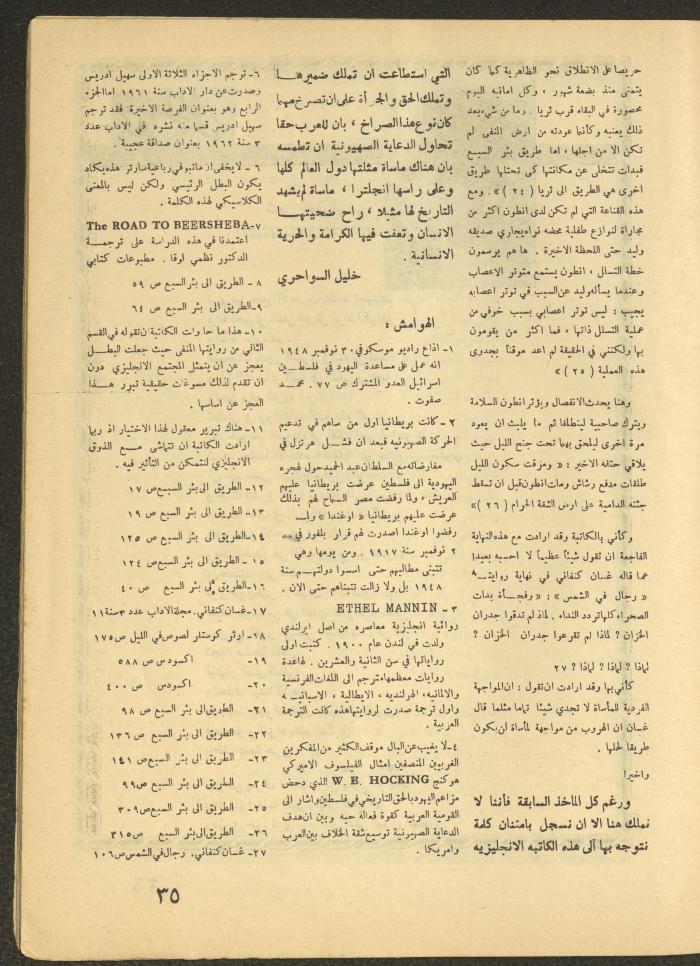 حريصا على الانطلاق نحو الظاهرية كما كان
يتمنى منذ بضعة شهور ، وكل امانيه اليوم
محصورة في البقاء قرب ثريا . وما من شيء بعد
ذلك يعنيه وكأنما عودته من ارض المنفى لم
تكن الا من اجلها ، اما طريق بئر السبع
فبدأت تتخلى عن مكانتها كي تحتلها طريق
اخرى هي الطريق الى ثريا ( ٢٤ ) » . ومع
هذه القناعة التي لم تكن لدى انطون اكثر من
مجاراة لنوازع طفلية محضه نراه يجاري صديقه
وليد حتى اللحظة الاخيرة . ها هم يرسمون
خطة التسلل ، انطون يستمع متوتر الاعصاب
وعندما يسأله وليد عن السبب في توتر اعصابه
يجيب : ليس توتر اعصابي بسبب خوفي من
عملية التسلل ذاتها ، فما اكثر من يقومون
بها ولكنني في الحقيقة لم اعد موقناً بجدوى
هذه العملية ( ٢٥ ) »
وهنا يحدث الانفصال ويؤثر انطون السلامة
ويترك صاحبيه لينطلقا ثم ما يلبث ان يعود
مرة اخرى ليلحق بهما تحت جنح الليل حيث
يلاقي حتفه الاخير : « ومزقت سكون الليل
طلقات مدفع رشاش ومات انطون قبل ان تسقط
جثته الدامية على ارض الضفة الحرام ( ٢٦ )»
وكأني بالكاتبة وقد ارادت مع هذه النهاية
الفاجعة ان تقول شيئاً عظيماً لا احسبه بعيدا
عما قاله غسان كنفاني في نهاية روايته
« رجال في الشمس » : « وفجأة بدات
الصحراء كلها تردد النداء . لماذا لم تدقوا جدران
الخزان ? لماذا لم تقرعوا جدران الخزان ?
لماذا ? لماذا ? لماذا ? ٢٧
كأني بها وقد ارادت ان تقول : ان المواجهة
الفردية للمأساة لا تجدي شيئا تماما مثلما قال
غسان ان الهروب من مواجهة المأساة لن يكون
طريقا لحلها .
واخيرا
ورغم كل المآخذ السابقة فأننا لا
نملك هنا الا ان نسجل بامتنان كلمة
نتوجه بها الى هذه الكاتبه الانجليزيه
التي استطاعت ان تملك ضميرها
وتملك الحق والجرأة على ان تصرخ مهما
كان نوع هذا الصراخ ، بان للعرب حقا
تحاول الدعاية الصهيونية ان تطمسه
بان هناك مأساة مثلتها دول العالم كلها
وعلى راسها انجلترا ، مأساة لم يشهد
التاريخ لها مثيلا ، راح ضحيتها
الانسان وتعفت فيها الكرامة والحرية
الانسانية .
خليل السواحري
الهوامش :
١- اذاع راديو موسكو في ٣٠ نوفمبر ١٩٤٨
انه عمل على مساعدة اليهود في فلسطين
اسرائيل العدو المشترك ص ٧٧ . محمد
صفوت .
٢- كانت بريطانيا اول من ساهم في تدعيم
الحركة الصهيونيه فبعد ان فشل هرتزل في
مفاوضاته مع السلطان عبد الحميد حول هجره
اليهودية الى فلسطين عرضت بريطانيا عليهم
العريش ، ولما رفضت مصر السماح لهم بذلك
عرضت عليهم بريطانيا « اوغندا » ولما
رفضوا اوغندا اصدرت لهم قرار بلفور في
٢ نوفمبر سنة ١٩١٧ . ومن يومها وهي
تتبنى مطالبهم حتى اسسوا دولتهم سنة
١٩٤٨ بل ولا زالت تتبناهم حتى الان .
٣ - ETHEL MANNIN
روائية انجليزية معاصره من اصل ايرلندي
ولدت في لندن عام ١٩٠٠ . كتبت اولى
رواياتها في سن الثانية والعشرين . لها عدة
روايات معظمها مترجم الى اللغات الفرنسية
والالمانيه ، الهولنديه ، الايطالية ، الاسبانيه
واول ترجمة صدرت لروايتها هذه كانت الترجمة
العربية .
٤- لا يغيب عن البال موقف الكثير من المفكرين
الغربيين المنصفين امثال الفيلسوف الاميركي
هوكنج W. E. HOCKING الذي دحض
مزاعم اليهود بالحق التاريخي في فلسطين واشار الى
القومية العربية كقوة فعالة حيه وبين ان هدف
الدعاية الصهيونية توسيع شقة الخلاف بين العرب
وامريكا .
٦- ترجم الاجزاء الثلاثة الاولى سهيل ادريس
وصدرت عن دار الاداب سنة ١٩٦١ اما الجزء
الرابع وهو بعنوان الفرصة الاخيرة فقد ترجم
سهيل ادريس قسما منه نشره في الاداب عدد
٣ سنة ١٩٦٢ بعنوان صداقة عجيبة .
٦ - لا يخفى ان ماتيو في رباعية سارتر هذه يكاد
يكون البطل الرئيسي ولكن ليس بالمعنى
الكلاسيكي لهذه الكلمة .
٧- The ROAD TO BEERSHEBA
اعتمدنا في هذه الدراسة على ترجمة
الدكتور نظمي لوقا . مطبوعات كتابي
٨ - الطريق الى بئر السبع ص ٥٩
٩- الطريق الى بئر السبع ص ٦٤
١٠- هذا ما حاولت الكاتبة ان تقوله في القسم
الثاني من روايتها المنفى حيث جعلت البطل
يعجز عن ان يتمثل المجتمع الانجليزي دون
ان تقدم لذلك مسوغات حقيقية تبرر هذا
العجز عن اساسها .
١١- هناك تبرير معقول لهذا الاختيار اذ ربما
ارادت الكاتبة ان تتماشى مع الذوق
الانجليزي لتتمكن من التأثير فيه .
١٢- الطريق الى بئر السبع ص ١٧
١٣- الطريق الى بئر السبع ص ١٩
١٤- الطريق الى بئر السبع ص ١٢٥
١٥ - الطريق الى بئر السبع ص ١٢٤
١٦- الطريق الى بئر السبع ص ٤٠
١٧- غسان كنفاني . مجلة الاداب عدد ٣ سنة ١١
١٨- ارثر كوستلر لصوص في الليل ص ١٧٥
١٩- اكسودس ص ٥٨٨
٢٠- اكسودس ص ٤٠٠
٢١- الطريق الى بئر السبع ص ٩٨
٢٢- الطريق الى بئر السبع ص ١٣٦
٢٣- الطريق الى بئر السبع ص ١٤١
٢٤- الطريق الى بئر السبع ص ٩٩
٢٥- الطريق الى بئر السبع ص ٣٠٩
٢٦- الطريق الى بئر السبع ص ٣١٥
٢٧- غسان كنفاني . رجال في الشمس ص ١٠٦
٣٥